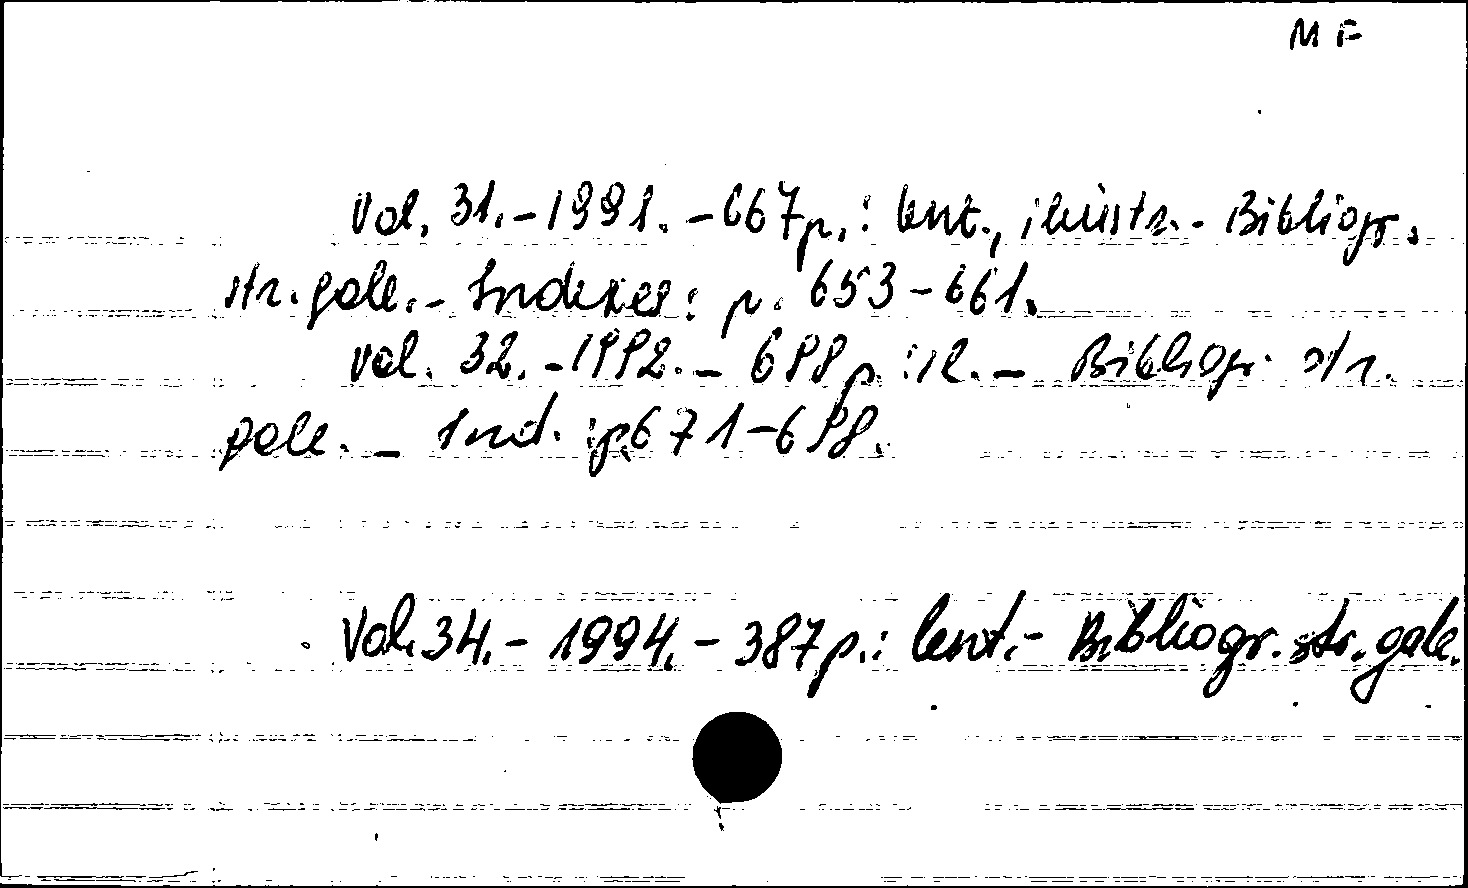 MF
Vol. 31.-1991.-667p.: lent., iliustr.- Bibliogr.
str. gale.- Indexes: p. 653-661.
Vol. 32.-1992.- 698 p.: il.- Bibliogr. str.
gale.- Ind.: p671-698.
Vol.34.- 1994.- 387p.: lent.- Bibliogr. str. gale.